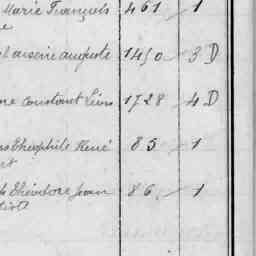 Marie François 461 1
e
arsene auguste 1450 3 D
ne Constant Léon 1728 4 D
s Théophile René 85 1
rt
Théodore Jean 86 1
tiste